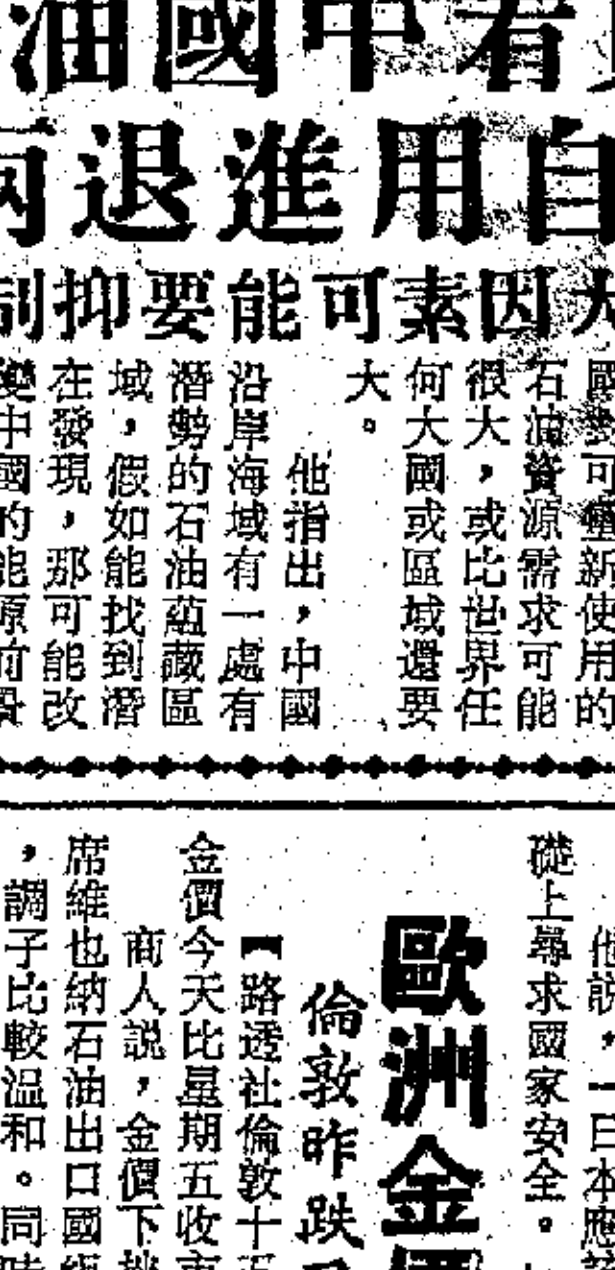 看中國油
自用進退兩
大因素可能要抑制
國對可種新使用的
石油資源需求可能
很大，或比世界任
何大國或區域還要
大。
他指出，中國
沿岸海域有一處有
潛勢的石油蘊藏區
域，假如能找到潛
在發現，那可能改
變中國的能源前景
他説，一日本應該
礎上尋求國家安全。
歐洲金價
倫敦昨跌
【路透社倫敦十五
金價今天比星期五收市
商人説，金價下挫
席維也納石油出口國
，調子比較温和。同時